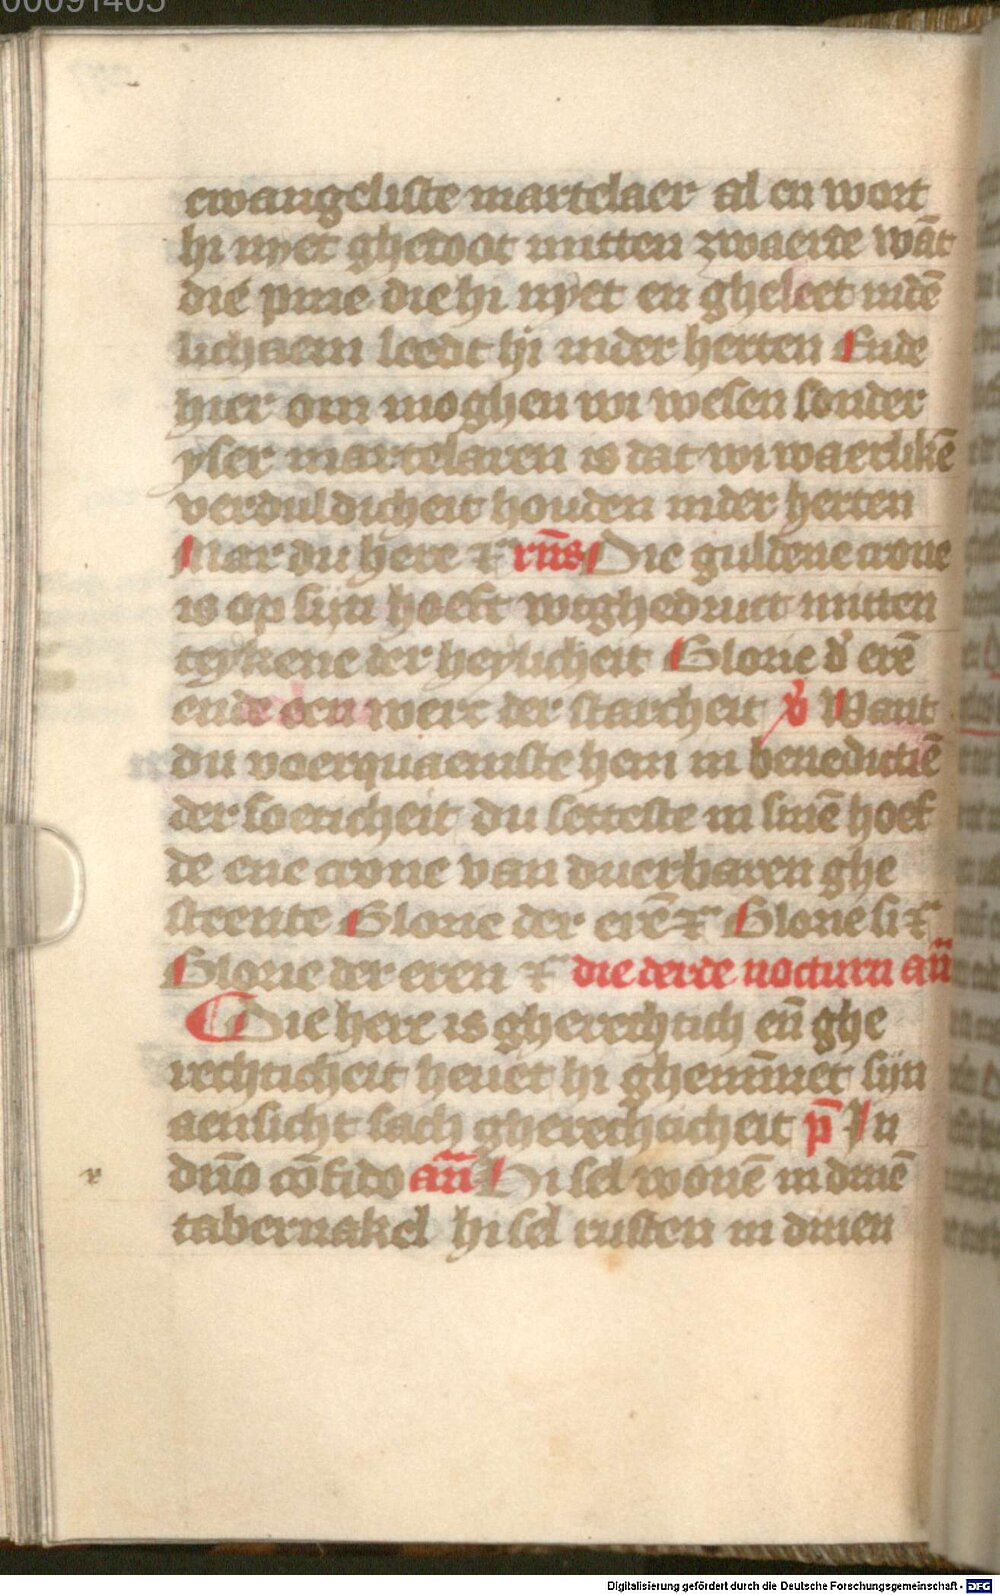 00091405
ewangeliste martelaer al en wort
hi nyet ghedoot mitten zwaerde wāt
die pine die hi nyet en gheleet indē
lichaem leedt hi inder herten Ende
hier om moghen wi wesen sonder
yser martelaren is dat wi waerlikē
verduldicheit houden inder herten
Mar du here ⁊c rūs Die guldene crone
is op sijn hoeft wtghedruct mitten
teykene der heylicheit Glorie d' erē
ende den werc der starcheit v̓ Want
du voerquaemste hem in benedictiē
der soeticheit du setteste in sinē hoef
de ene crone van duerbaren ghe
steente Glorie der erē ⁊c Glorie si ⁊c
Glorie der eren ⁊c die derde nocturn an̄
Die here is gherechtich en̄ ghe
rechticheit heuet hi ghemīnet sijn
aensicht sach gherechticheit p̄ In
dn̄o cōfido an̄ Hi sel wonē in dinē
tabernakel hi sel rusten in dinen
Digitalisierung gefördert durch die Deutsche Forschungsgemeinschaft - DFG